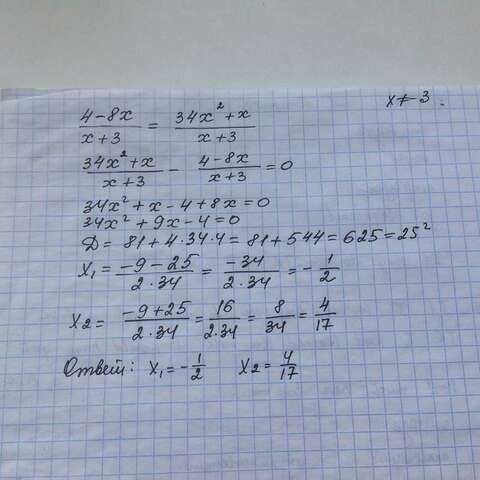 x ≠ -3.
(4-8x)/(x+3) = (34x²+x)/(x+3)
(34x²+x)/(x+3) - (4-8x)/(x+3) = 0
34x²+x-4+8x=0
34x²+9x-4=0
D = 81+4·34·4=81+544=625=25²
x₁ = (-9-25)/(2·34) = (-34)/(2·34) = -1/2
x₂ = (-9+25)/(2·34) = 16/(2·34) = 8/34 = 4/17
Ответ: x₁ = -1/2 x₂ = 4/17